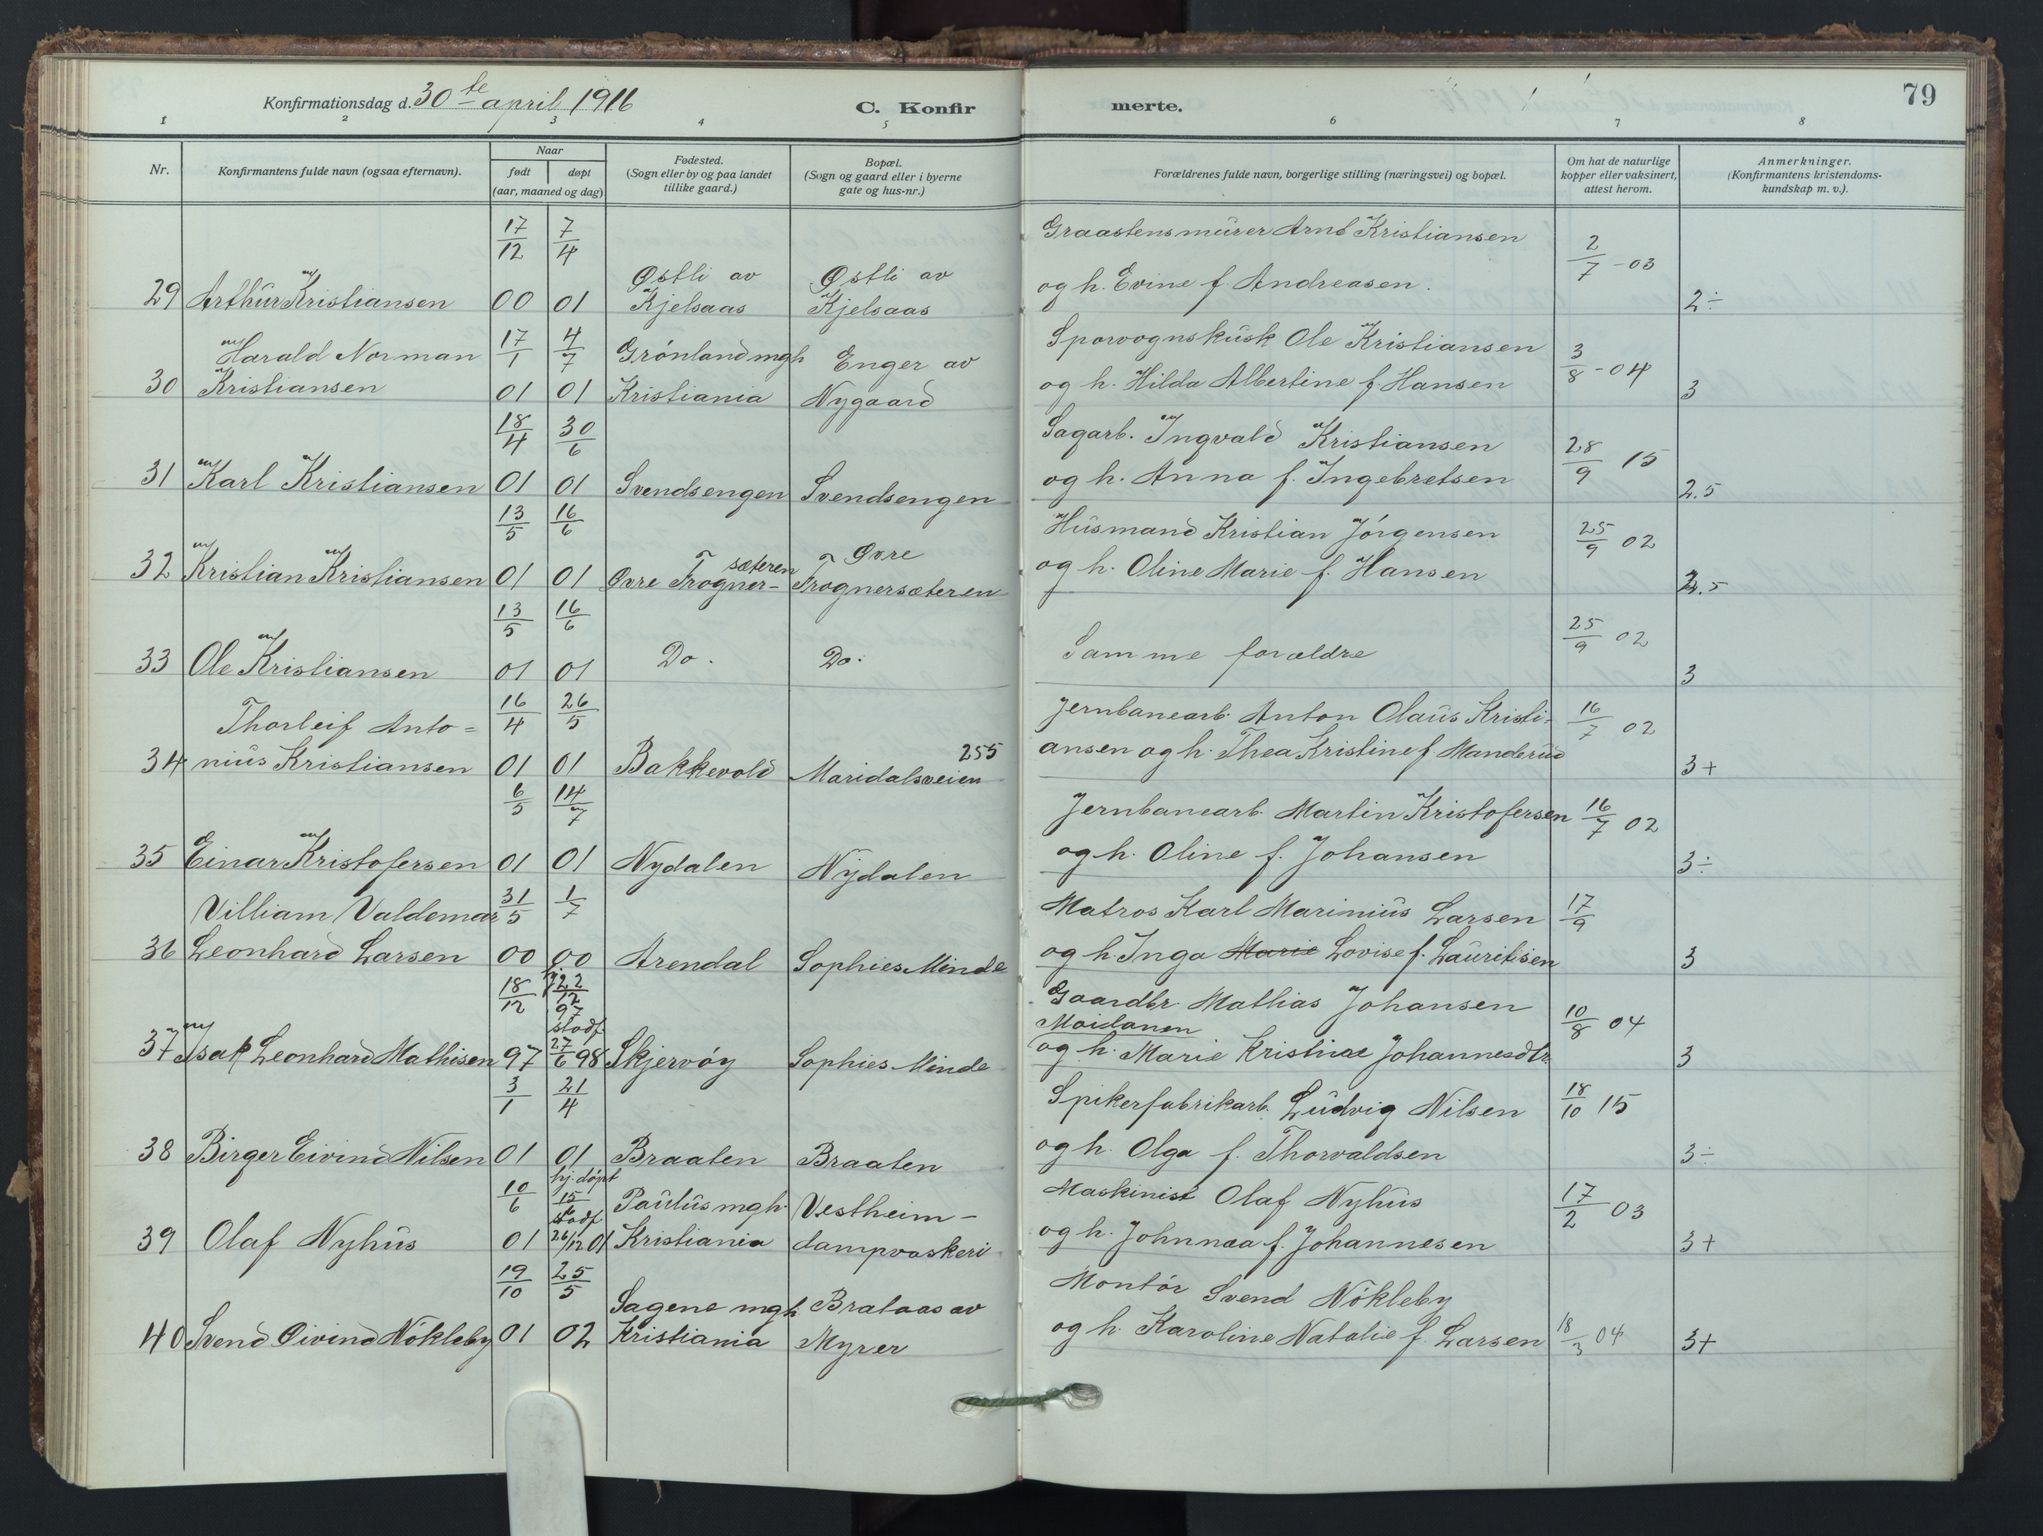 79
Konfirmationsdag d. 30te april 1916 C. Konfirmerte.
1 2 3 4 5 6 7 8
Nr. Konfirmantens fulde navn (ogsaa efternavn). Naar født døpt (aar, maaned og dag) Fødested. (Sogn eller by og paa landet tillike gaard.) Bopæl. (Sogn og gaard eller i byerne gate og hus-nr.) Forældrenes fulde navn, borgerlige stilling (næringsvei) og bopæl. Om hat de naturlige kopper eller vaksinert, attest herom. Anmerkninger. (Konfirmantens kristendomskundskap m. v.).
17/12 7/4 Graastensmürer Arnt Kristiansen 2/7 -03
Østli av Østli av
29 Arthür Kristiansen 00 01 Kjelsaas Kjelsaas og h. Evine f. Andreasen. 2÷
Harald Norman 17/1 4/7 Grönland mgh Enger av Sporvognskusk Ole Kristiansen 3/8 -04
30 Kristiansen 01 01 Kristiania Nygaard og h. Hilda Albertine f. Hansen 3
18/4 30/6 Sagarb. Ingvald Kristiansen 28/9 15
31 Karl Kristiansen 01 01 Svendsengen Svendsengen og h. Anna f. Ingebretsen 2.5
13/5 16/6 Hüsmand Kristian Jörgensen 25/9 02
sæteren Øvre
32 Kristian Kristiansen 01 01 Øvre Frogner- Frognersæteren og h. Oline Marie f. Hansen 2.5
13/5 16/6 25/9 02
33 Ole Kristiansen 01 01 Do. Do. Samme forældre 3
Thorleif Anto= 16/4 26/5 Jernbanearb. Anton Olaüs Kristi- 16/7 02
255
34 niüs Kristiansen 01 01 Bakkevold Maridalsveien ansen og h. Thea Kristine f Manderüd 3+
6/5 14/7 Jernbanearb. Martin Kristofersen 16/7 02
35 Einar Kristofersen 01 01 Nydalen Nydalen og h. Oline f. Johansen 3÷
Villiam Valdemar 31/5 1/7 Matros Karl Mariniüs Larsen 17/9
36 Leonhard Larsen 00 00 Arendal Sophies Minde og h. Inga Marie Lovise f. Lauritsen 3
18/12 hj. 22/12 97 Gaardbr. Mathias Johansen 10/8 04
stadf. Moidanen
37 Isak Leonhard Mathisen 97 27/6 98 Skjervöy Sophies Minde og h. Marie Kristine Johannesdtr. 3
3/1 21/4 Spikerfabrikarb. Ludvig Nilsen 18/10 15
38 Birger Eivind Nilsen 01 01 Braaten Braaten og h. Olga f. Thorvaldsen 3÷
hj. döpt
10/6 15/6 Paulüs mgh. Vestheim- Maskinist Olaf Nyhüs 17/2 03
stadf
39 Olaf Nyhüs 01 26/12 01 Kristiania dampvaskeri og h. Johnnaa f. Johannesen 3+
19/10 25/5 Sagene mgh. Brataas av Montör Svend Nökleby
40 Svend Öivind Nökleby 01 02 Kristiania Myrer og h. Karoline Natalie f. Larsen 18/3 04 3+